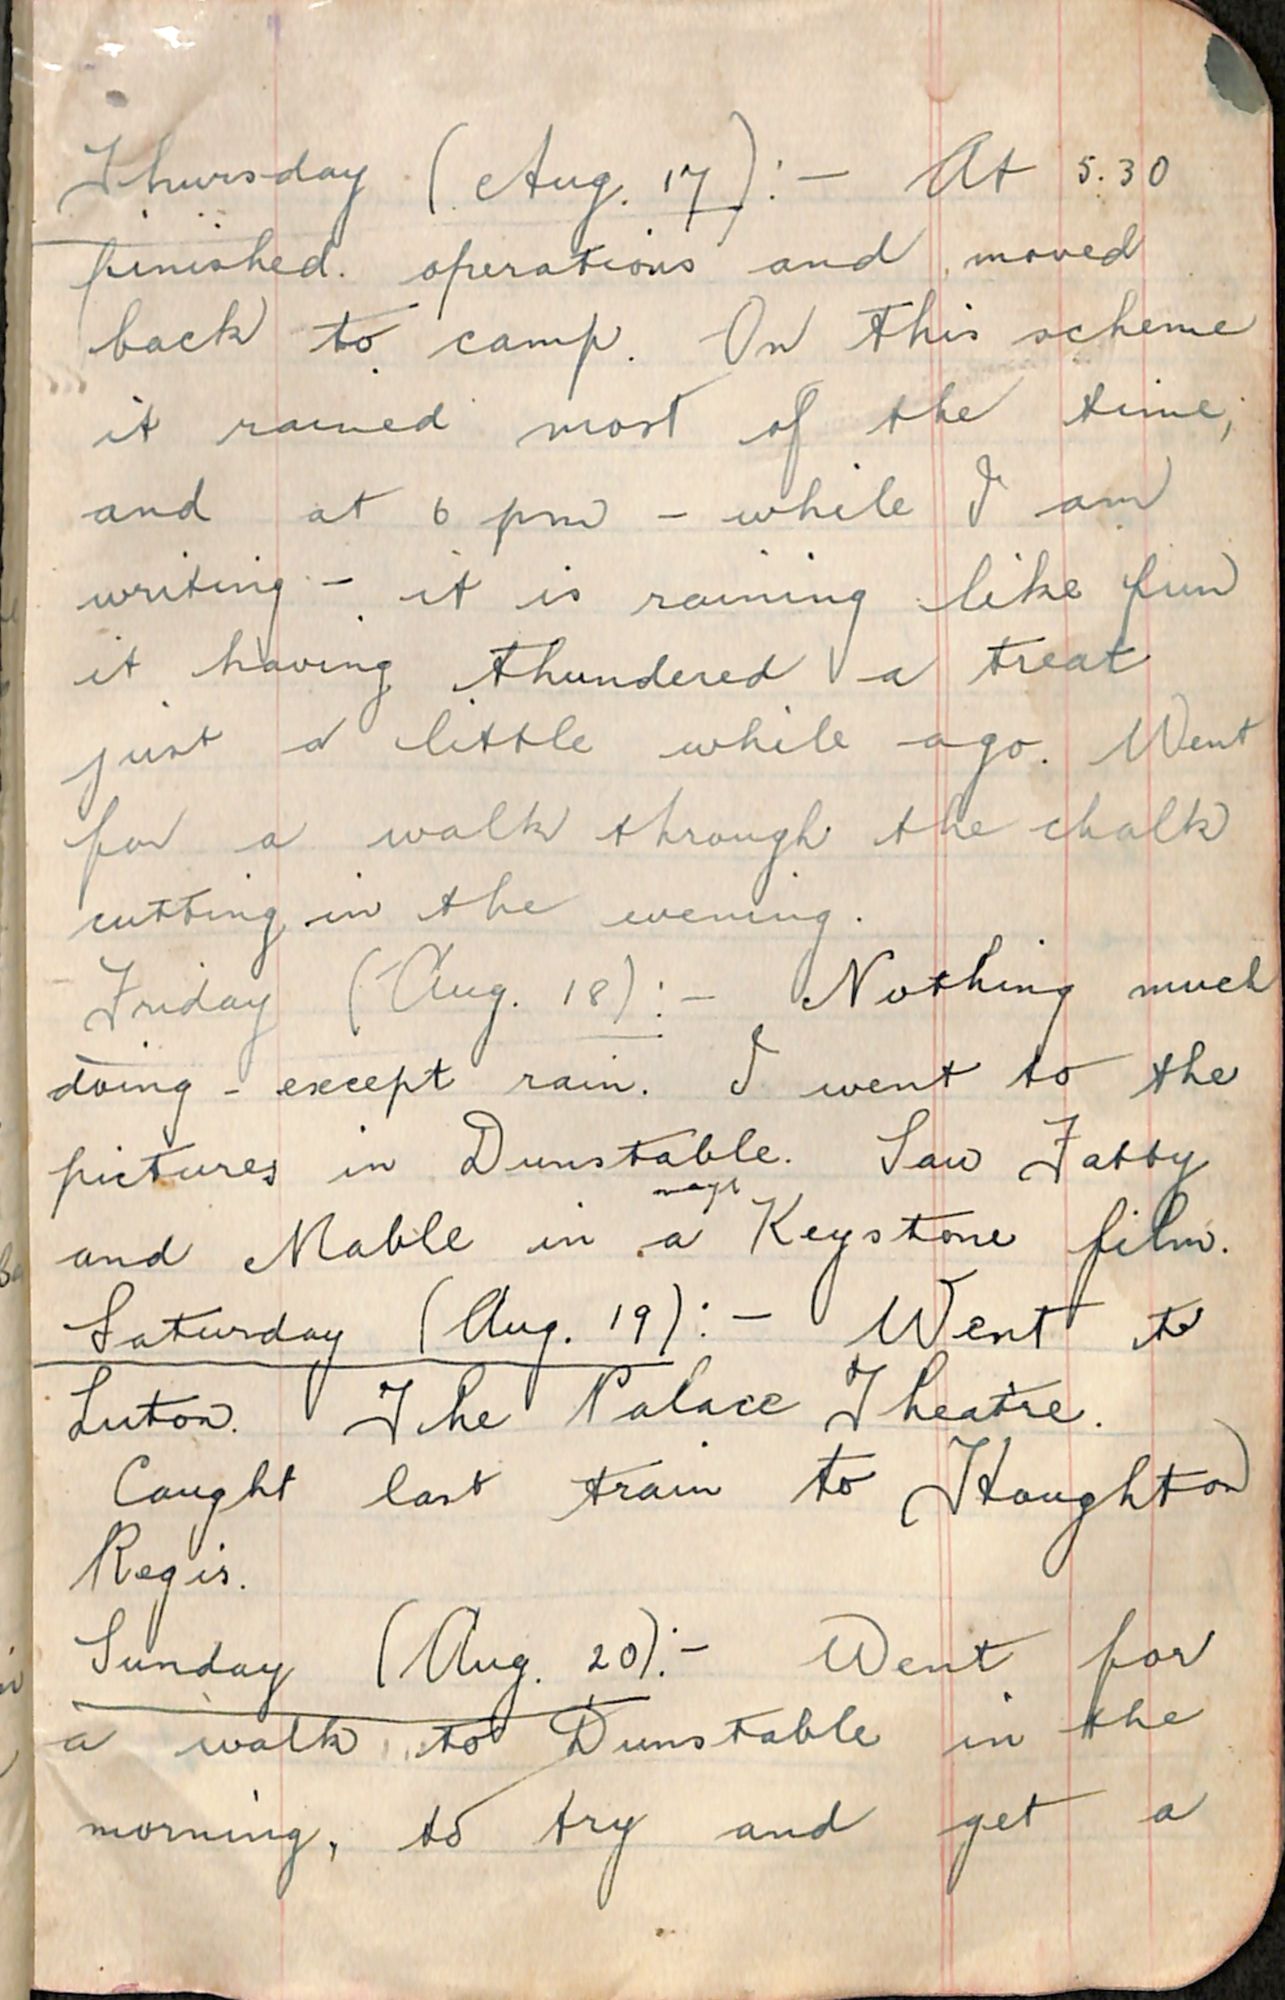 Thursday (Aug. 17):- At 5.30
finished. operations and moved
back to camp. On this scheme
it rained most of the time,
and at 6 pm - while I am
writing - it is raining like fun
it having thundered a treat
just a little while ago. Went
for a walk through the chalk
cutting in the evening.
Friday (Aug. 18):- Nothing much
doing - except rain. I went to the
pictures in Dunstable. Saw Fatty
and Mable in a Keystone film.
Saturday (Aug. 19):- Went to
Luton. The Palace Theatre.
Caught last train to Houghton
Regis.
Sunday (Aug. 20):- Went for
a walk to Dunstable in the
morning, to try and get a